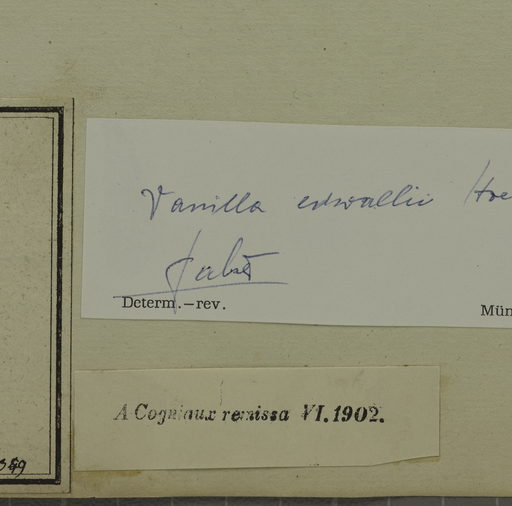 Vanilla edwallii Hoe
Pabst
Determ.—rev.
Mün
A Cogniaux remissa VI.1902.